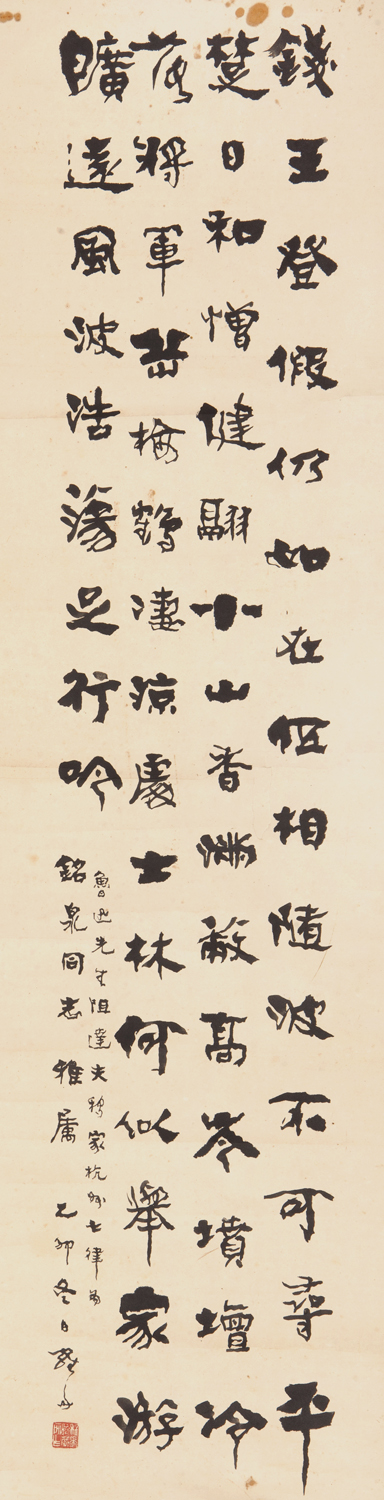 錢王登假仍如在伍相隨波不可尋平
楚日和憎健翮小山香滿蔽高岑墳壇冷
落將軍岳梅鶴淒涼處士林何似舉家游
曠遠風波浩蕩足行吟
魯迅先生阻達夫移家杭州七律為
銘泉同志雅屬 乙卯冬日羅丹